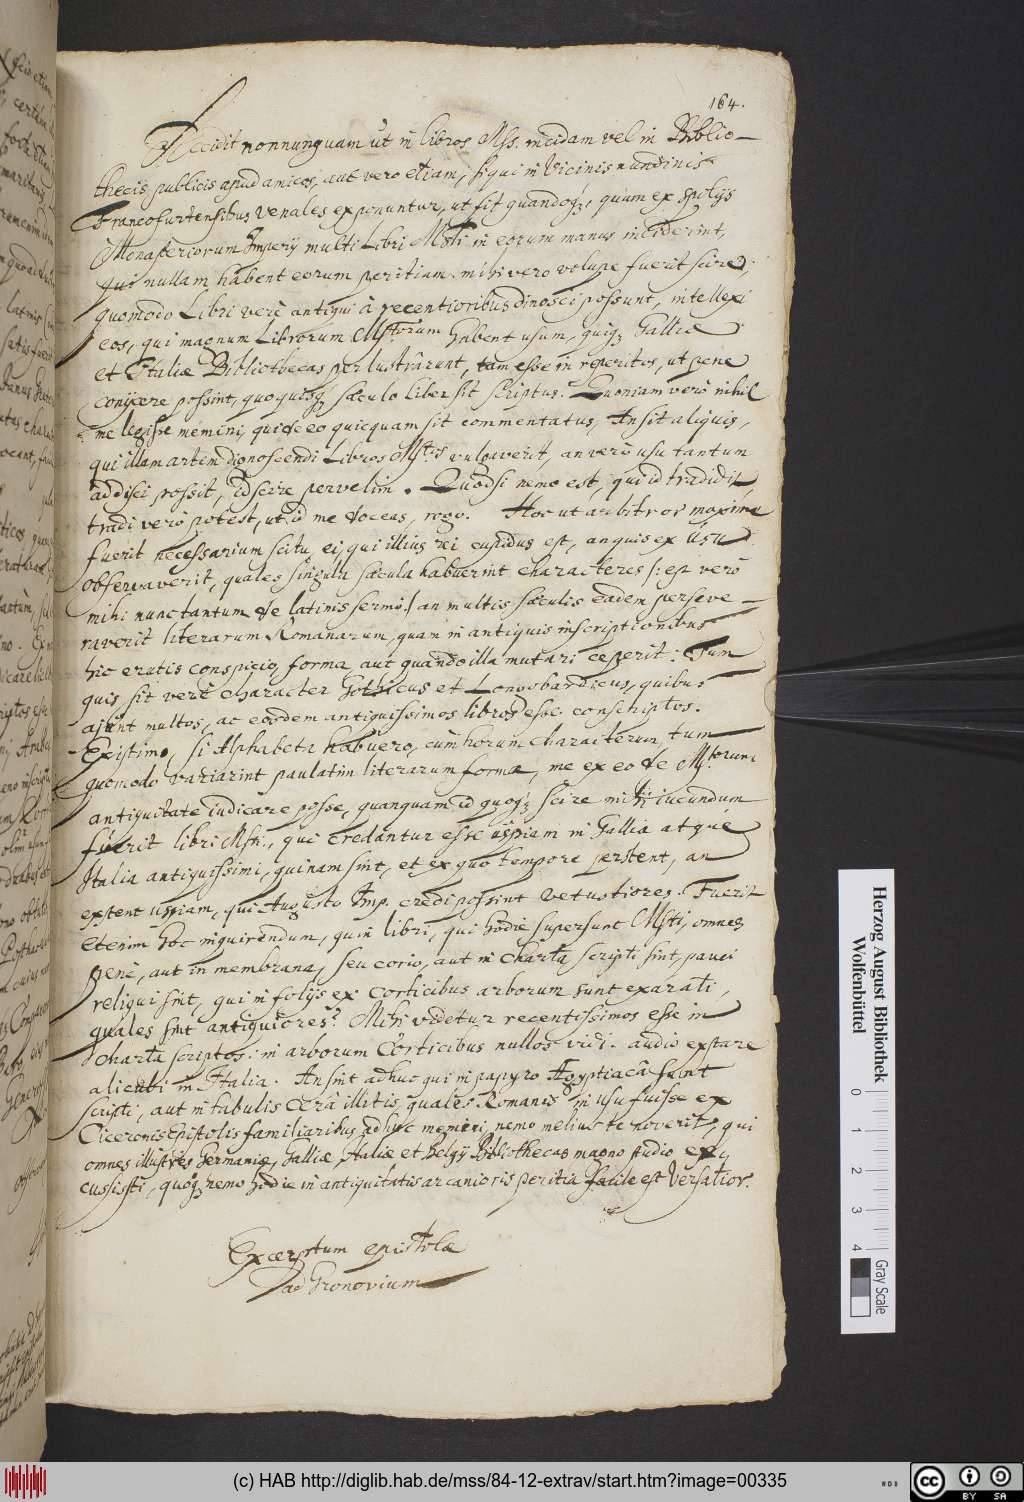 164.
Accidit nonnunquam ut in libros Mss. incidam vel in Biblio-
thecis publicis apud amicos, aut vero etiam, siqui in vicinis nundinis
Francofurtensibus venales exponuntur, ut fit quandoq;, quum ex spolijs
Monasteriorum Imperij multi Libri Msti in eorum manus inciderint,
qui nullam habent eorum peritiam. mihi vero volupe fuerit scire,
quomodo Libri verè antiqui à recentioribus dinosci possunt, intellexi
eos, qui magnum Librorum Mstorum habent usum, quiq; Galliæ
et Italiæ Bibliothecas perlustrârunt, tam esse in reperitos, ut pene
conijcere possint, quo quisq; sæculo liber sit scriptus. Quoniam verò nihil
me legisse memini, qui de eo quicquam sit commentatus, An sit aliquis,
qui illam artem dignoscendi Libros Mstis vulgaverit, an verò usu tantum
addisci possit, id scire pervelim. Quodsi nemo est, qui id tradidit,
tradi verò potest, ut id me doceas, rogo. Hoc ut arbitror maxime
fuerit necessarium scitu, ei, qui illius rei cupidus est, an quis ex usu
observaverit, quales singula sæcula habuerint characteres /: est verò
mihi nunc tantum de latinis sermo :/ an multis sæculis eadem perseve-
raverit literarum Romanarum, quam in antiquis inscriptionibus
hic eratis conspicio, forma, aut quando illa mutari ceperit: Tum
quis sit verè character Gothicus et Longobardicus, quibus
ajunt multos, ac eosdem antiquissimos libros esse conscriptos.
Existimo, si Alphabeta habuero, cùm horum characterum, tum
quomodo variarint paulatim literarum formæ, me ex eo de Mstorum
antiquitate iudicare posse, quanquam id quoq; scire mihi iucundum
fuerit libri Msti, qui credantur esse uspiam in Gallia atque
Italia antiquissimi, quinam sint, et ex quo tempore perstent, an
extent uspiam, qui Augusto Imp. credi possint vetustiores. Fuerit
etenim hoc inquirendum, quin libri, qui hodie supersunt Msti, omnes
penè, aut in membrana, seu corio, aut in charta scripti sint, pauci
reliqui sint, qui in folijs ex corticibus arborum sunt exarati,
quales sint antiquiores? Mihi videtur recentissimos esse in
charta scriptos: in arborum Corticibus nullos vidi. audio exstare
alicubi in Italia. An sint adhuc qui in papyro Ægyptiacâ sunt
scripti, aut in tabulis cerâ illitis, quales Romanis in usu fuisse ex
Ciceronis Epistolis familiaribus adhuc memini, nemo melius te noverit, qui
omnes illustres Germaniæ, Galliæ, Italiæ et Belgij Bibliothecas magno studio ex-
cussisti, quoq; nemo hodie in antiquitatis arcanioris peritia facile est versatior.
Excerptum epistolæ
ad Gronovium
Herzog August Bibliothek
Wolfenbüttel
0 1 2 3 4
Gray Scale
(c) HAB http://diglib.hab.de/mss/84-12-extrav/start.htm?image=00335
cc BY SA